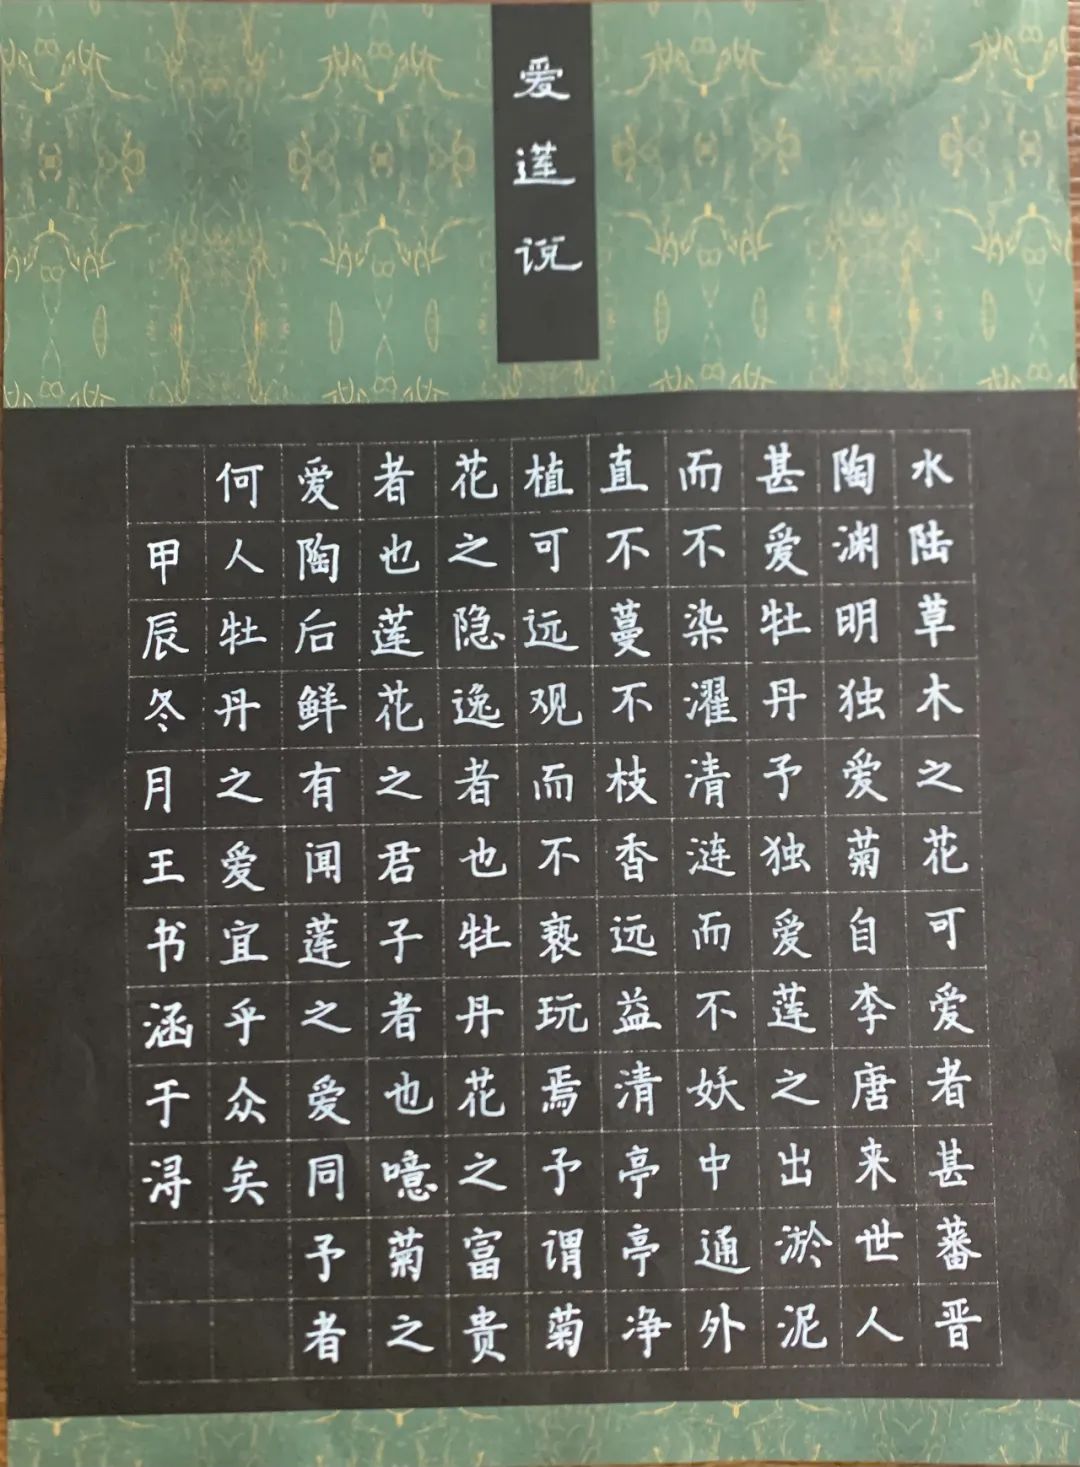 爱莲说
水陆草木之花可爱者甚蕃晋
陶渊明独爱菊自李唐来世人
甚爱牡丹予独爱莲之出淤泥
而不染濯清涟而不妖中通外
直不蔓不枝香远益清亭亭净
植可远观而不亵玩焉予谓菊
花之隐逸者也牡丹花之富贵
者也莲花之君子者也噫菊之
爱陶后鲜有闻莲之爱同予者
何人牡丹之爱宜乎众矣
甲辰冬月王书涵于浔